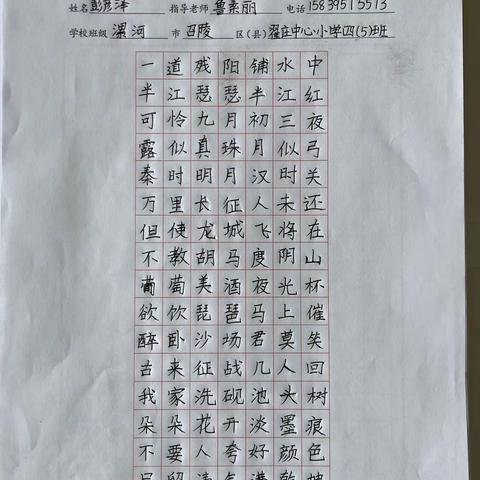 姓名 彭彦泽 指导老师 鲁素丽 电话 15839515573
学校班级 漯河 市 召陵 区(县) 翟庄中心小学四(5)班
一道残阳铺水中
半江瑟瑟半江红
可怜九月初三夜
露似真珠月似弓
秦时明月汉时关
万里长征人未还
但使龙城飞将在
不教胡马度阴山
葡萄美酒夜光杯
欲饮琵琶马上催
醉卧沙场君莫笑
古来征战几人回
我家洗砚池头树
朵朵花开淡墨痕
不要人夸好颜色
只留清气满乾坤